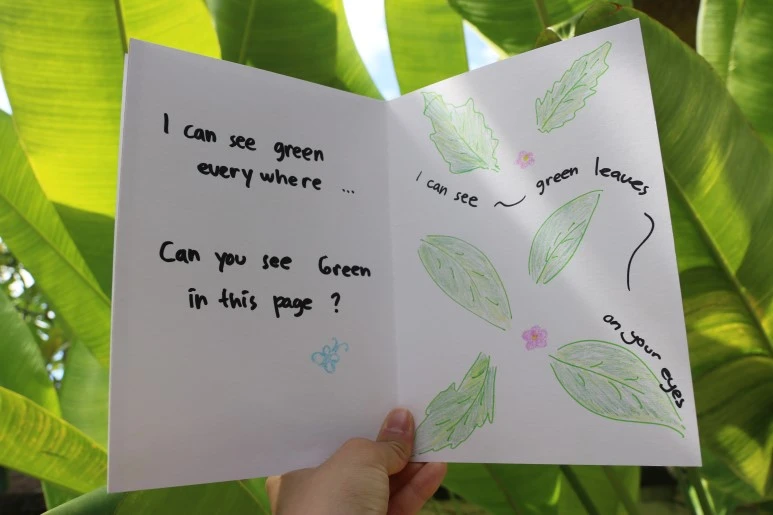 I can see green
everywhere ...
Can you see Green
in this page ?
I can see ~ green leaves
on your eyes